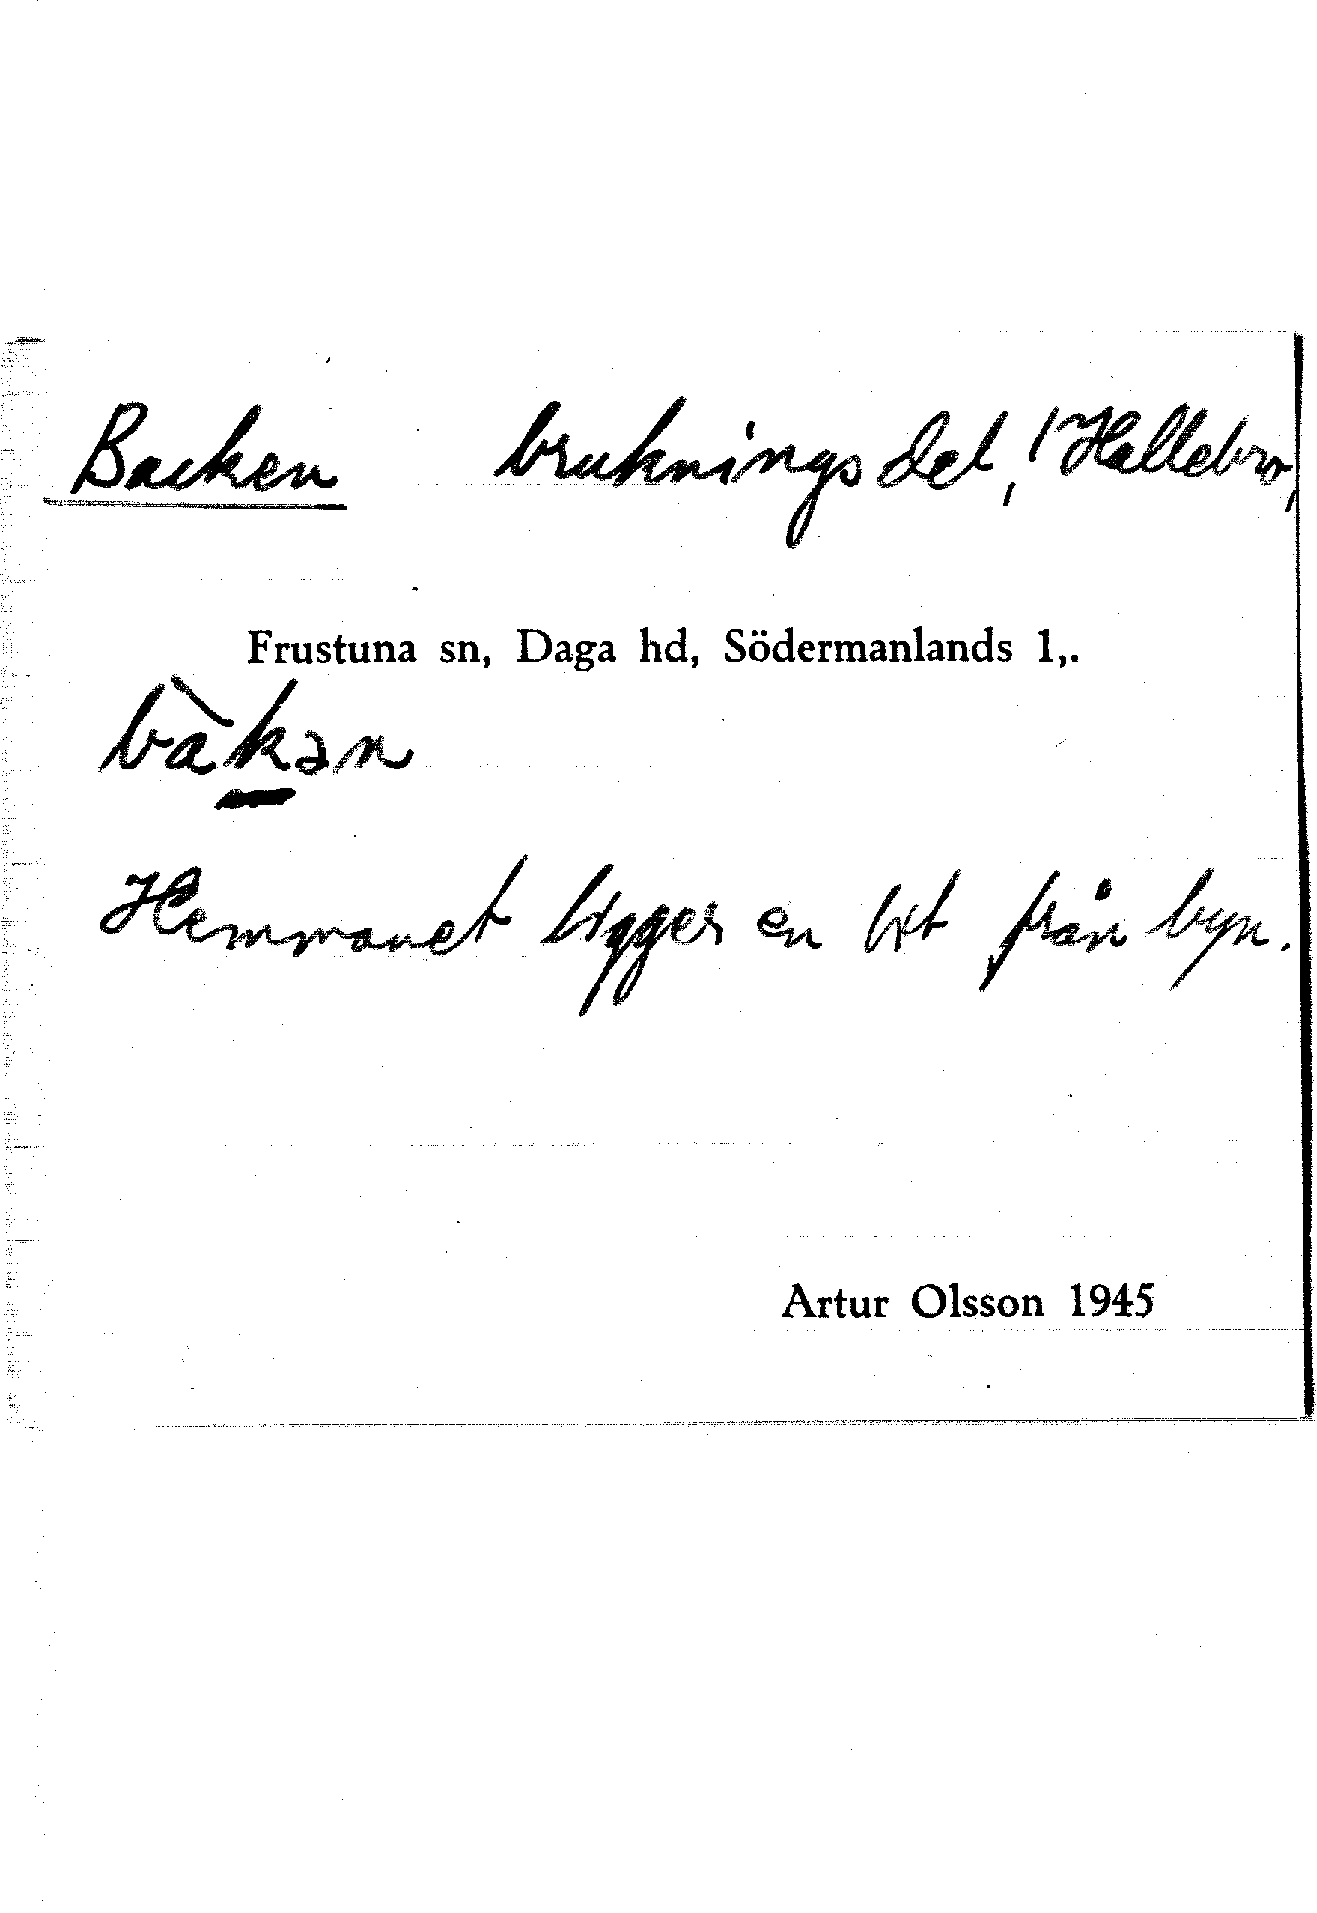 Backen brukningsdel, 1 Hallebro,
Frustuna sn, Daga hd, Södermanlands l,.
bàkən
Hemmanet ligger en bit från byn.
Artur Olsson 1945